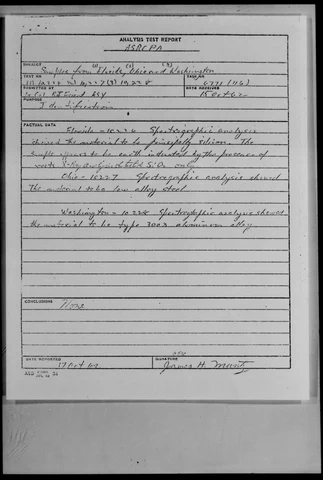 ANALYSIS TEST REPORT
ASRCPA
SUBJECT (1) (2) (3)
Samples from Florida, Ohio and Washington
TEST NO
10226 10227 (3) 10228
6271 (46)
SUBMITTED BY
DATE RECEIVED
Lt Col RJ Friend
15 Oct 62
PURPOSE
Identification
FACTUAL DATA
Florida - 10226 Spectrographic analysis
showed the material to be principally silicon. The
sample appears to be earth indicated by the presence of
roots
Ohio - 10227 Spectrographic analysis showed
The material to be low alloy steel
Washington - 10228 Spectrographic analysis showed
the material to be type 3003 aluminum alloy.
CONCLUSIONS
None
DATE REPORTED
SIGNATURE
17 Oct 62
James H. Muntz
ASD